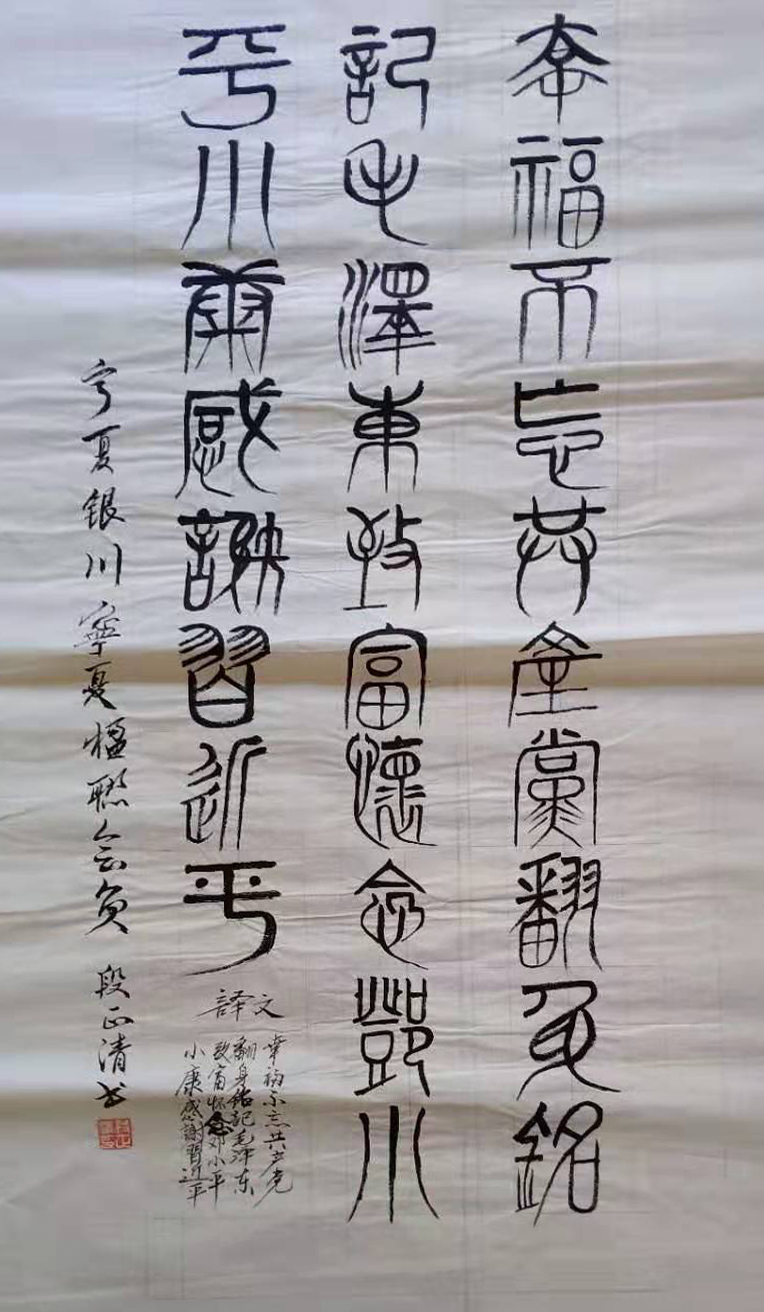 幸福不忘共產黨翻身銘
記毛澤東致富懷念鄧小
平小康感謝習近平
譯文
幸福不忘共产党
翻身铭記毛泽东
致富怀念邓小平
小康感謝習近平
宁夏银川寧夏楹聯会员 段正清书